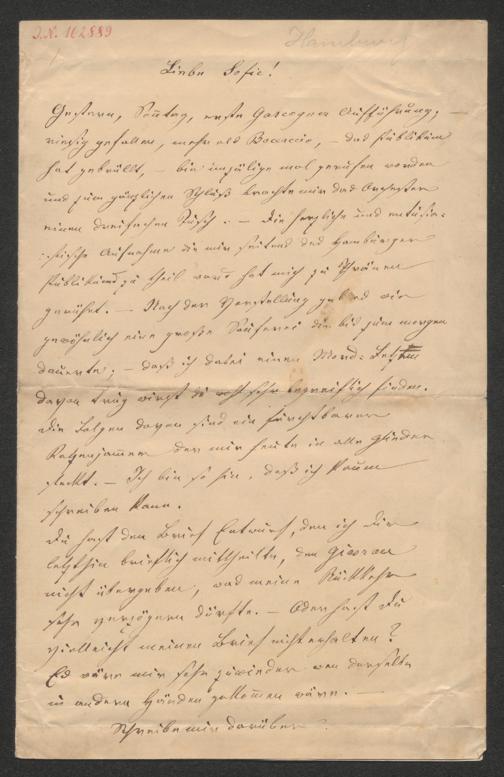 J.N. 162889
Hamburg
Liebe Sofie!
Gestern, Sonntag, erste Gascogner Aufführung; —
riesig gefallen, mehr als Bocaccio, — das Publikum
hat gebrüllt, — bin unzälige mal gerufen worden
und zum gänzlichen Schluß brachte mir das Orchester
einen dreifachen Tusch. — Die herzliche und entusia-
stische Aufnahme die mir seitens des Hamburger
Publikums zu theil ward hat mich zu Thränen
gerührt. — Nach der Vorstellung gab es wie
gewöhnlich eine große Sauferei die bis zum morgen
dauerte; — daß ich dabei einen Mords-
davon trug wirst du wohl sehr begreiflich finden.
Die Folgen davon sind ein furchtbarer
Katzenjammer der mir heute in alle Glieder
steckt. — Ich bin so hin, daß ich kaum
schreiben kann.
Du hast den Brief Entwurf, den ich Dir
letzthin brieflich mittheilte, den
nicht übergeben, was meine Rückkehr
sehr verzögern dürfte. — Oder hast Du
vielleicht meinen Brief nicht erhalten?
Es wäre mir sehr zuwieder wen derselbe
in andern Händen gekommen wäre. —
Schreibe mir darüber